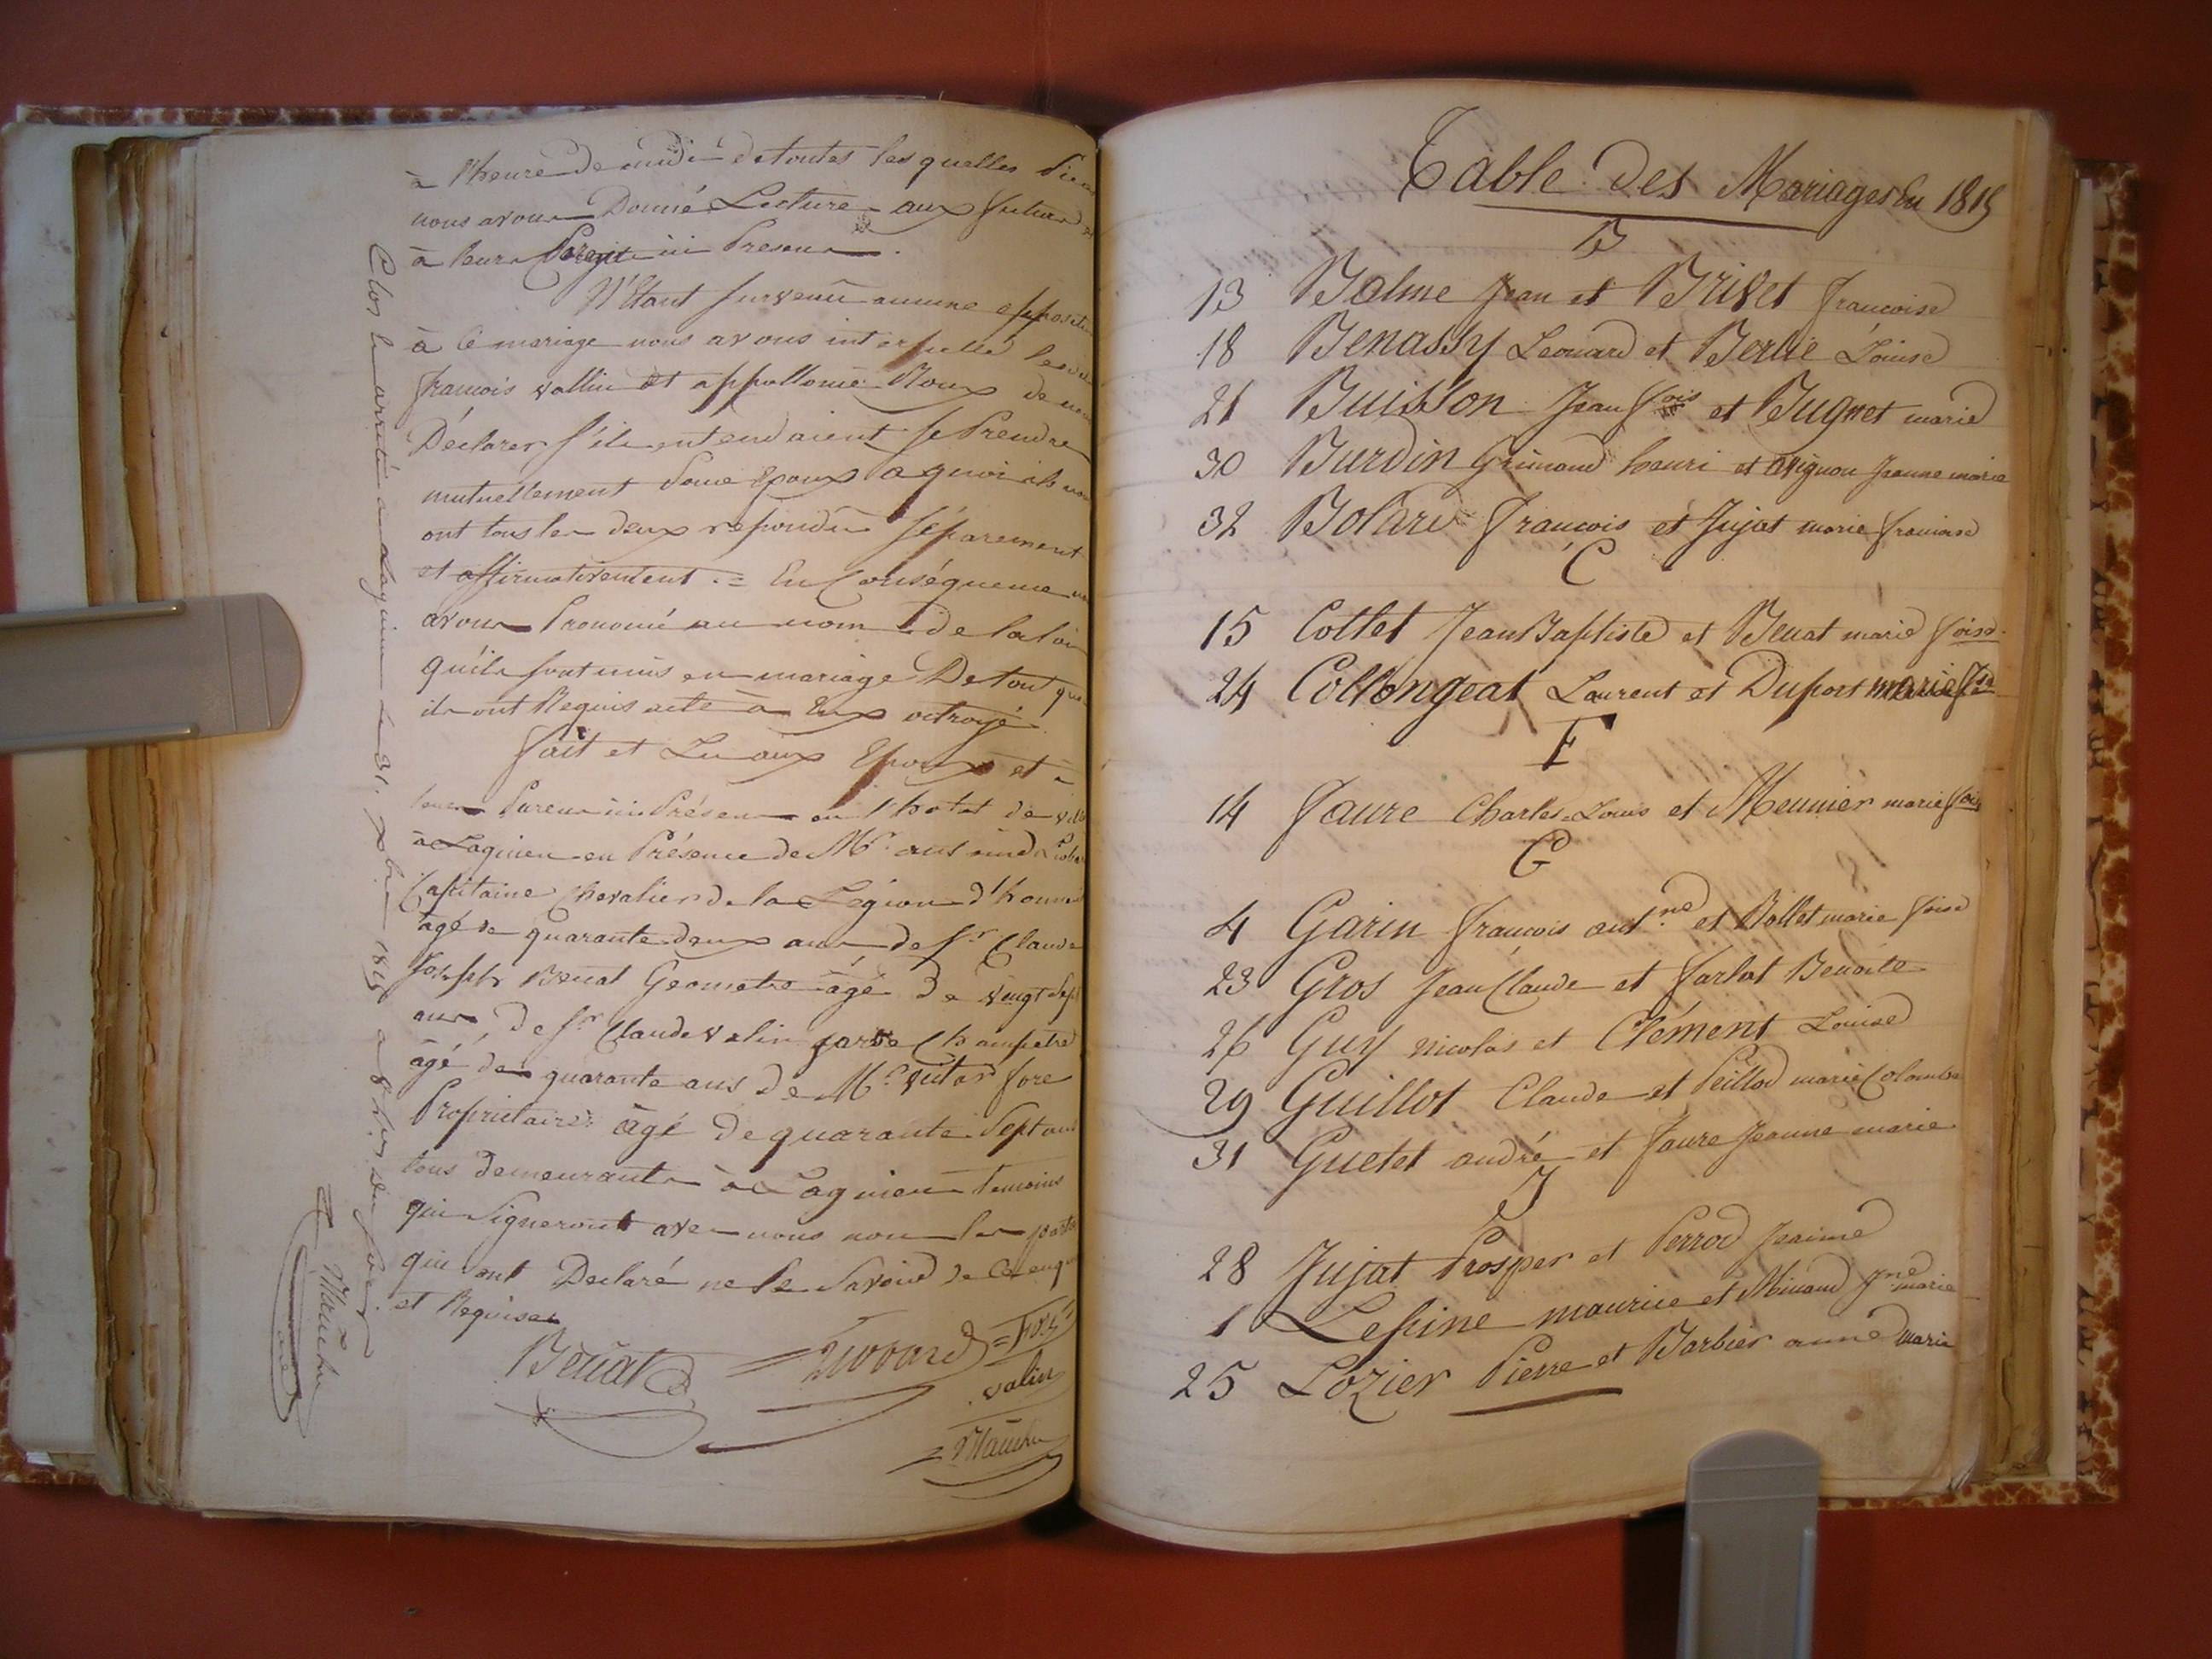 à l'heure de midi detoutes lesquelles
nous avons Donné Lecture aux futurs
à leurs Parents ici Presens.
N'Etant survenu aucune opposition
à ce mariage nous avons interpellé
françois vallin et appollonie Roux de
Déclarer s'ils entendaient se Prendre
mutuellement Pour Epoux a quoi ils
ont tous les deux repondu séparement
et affirmativement. = En Conséquence
avons Prononcé au nom de la loi
qu'ils sont unis en mariage De tout que
ils ont Requis acte à Eux octroyé
fait et Lu aux Epoux et à
leurs Parens ici Présens en l'hotel de ville
à Lagnieu en Présence de Mr
Capitaine Chevalier de la Légion d'honneur
agé de quarante deux ans de Sr Claude
Joseph Benat Geometre âgé de vingt sept
ans, de Sr Claude valin garde Champetre
âgé de quarante ans de Mr victor fore
Propriétaire âgé de quarante Sept ans
tous demeurants à Lagnieu temoins
qui Signeront avec nous non les parties
qui ont Declaré ne le Savoir de ce enquis
et Requises
Benat
valin
Clos et arrêté à Lagnieu le 31. xbre 1815 a 8 h. du soir
Table des Mariages En 1815
B
13 Balme Jean et Brivet francoise
18 Benassy Leonard et Berlie Louise
21 Buisson Jean fois et Bugnet marie
30 Burdin Grimaud henri et avignon Jeanne marie
32 Bolard francois et Jujat marie francoise
C
15 Collet Jean Baptiste et Benat marie foise
24 Collongeat Laurent et Duport marie fse
F
14 faure Charles Louis et Meunier marie foise
G
4 Garin francois antne et Rollet marie foise
23 Gros Jean Claude et farlat Benoite
26 Guy nicolas et Clément Louise
29 Guillot Claude et Peillod marie Colombe
31 Guetet andré et faure Jeanne marie
J
28 Jujat Prosper et Perrod Jeanne
1 Lepine maurice et Minand Jne marie
25 Lozier Pierre et Barbier anne marie